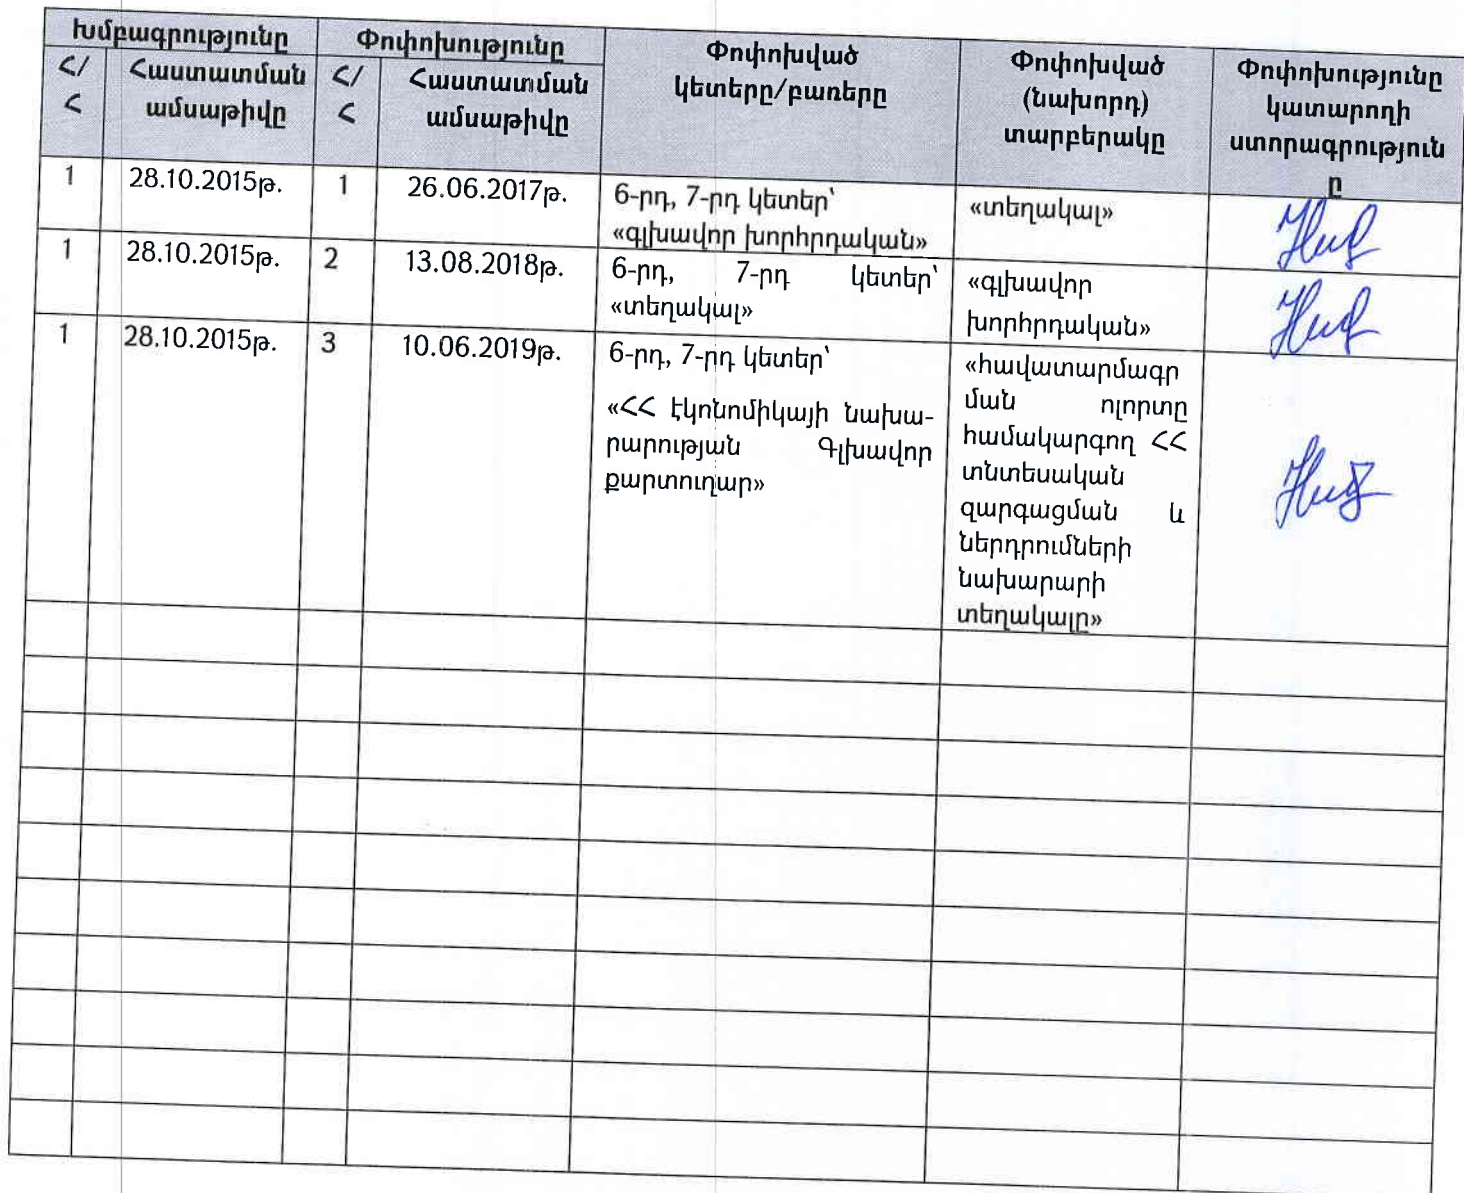 Խմբագրությունը Փոփոխությունը Փոփոխված կետերը/բառերը Փոփոխված (նախորդ) տարբերակը Փոփոխությունը կատարողի ստորագրություն ը
Հ/Հ Հաստատման ամսաթիվը Հ/Հ Հաստատման ամսաթիվը
1 28.10.2015թ. 1 26.06.2017թ. 6-րդ, 7-րդ կետեր՝
«գլխավոր խորհրդական»
«տեղակալ»
1 28.10.2015թ. 2 13.08.2018թ. 6-րդ, 7-րդ կետեր՝
«տեղակալ»
«գլխավոր
խորհրդական»
1 28.10.2015թ. 3 10.06.2019թ. 6-րդ, 7-րդ կետեր՝
«ՀՀ էկոնոմիկայի նախա-
րարության Գլխավոր
քարտուղար»
«հավատարմագր
ման ոլորտը
համակարգող ՀՀ
տնտեսական
զարգացման և
ներդրումների
նախարարի
տեղակալը»